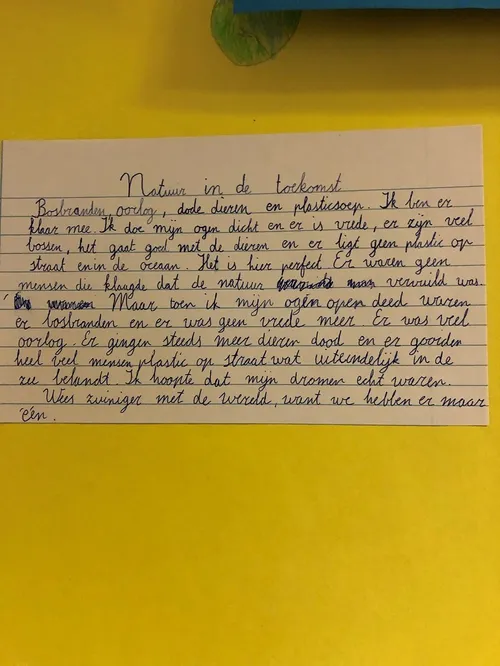 Natuur in de toekomst
Bosbranden, oorlog, dode dieren en plasticsoep. Ik ben er
klaar mee. Ik doe mijn ogen dicht en er is vrede, er zijn veel
bossen, het gaat goed met de dieren en er ligt geen plastic op
straat en in de oceaan. Het is hier perfect. Er waren geen
mensen die klaagde dat de natuur vervuild was.
Maar toen ik mijn ogen open deed waren
er bosbranden en er was geen vrede meer. Er was veel
oorlog. Er gingen steeds meer dieren dood en er gooiden
heel veel mensen plastic op straat wat uiteindelijk in de
zee belandt. Ik hoopte dat mijn dromen echt waren.
Wees zuiniger met de wereld, want we hebben er maar
één.